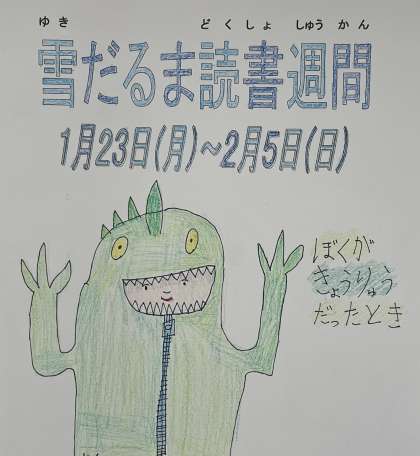 ゆき どくしょ しゅうかん
雪だるま読書週間
1月23日(月)~2月5日(日)
ぼくが
きょうりゅう
だったとき